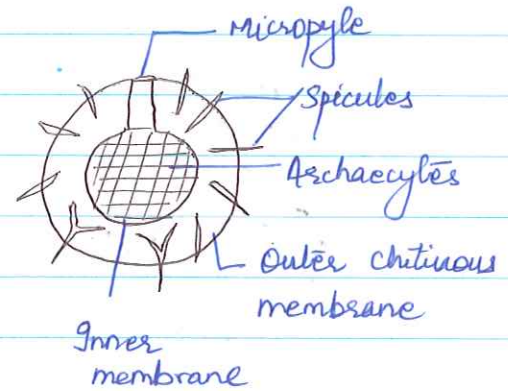 Micropyle
Spicules
Archaecytes
Outer chitinous
membrane
Inner
membrane